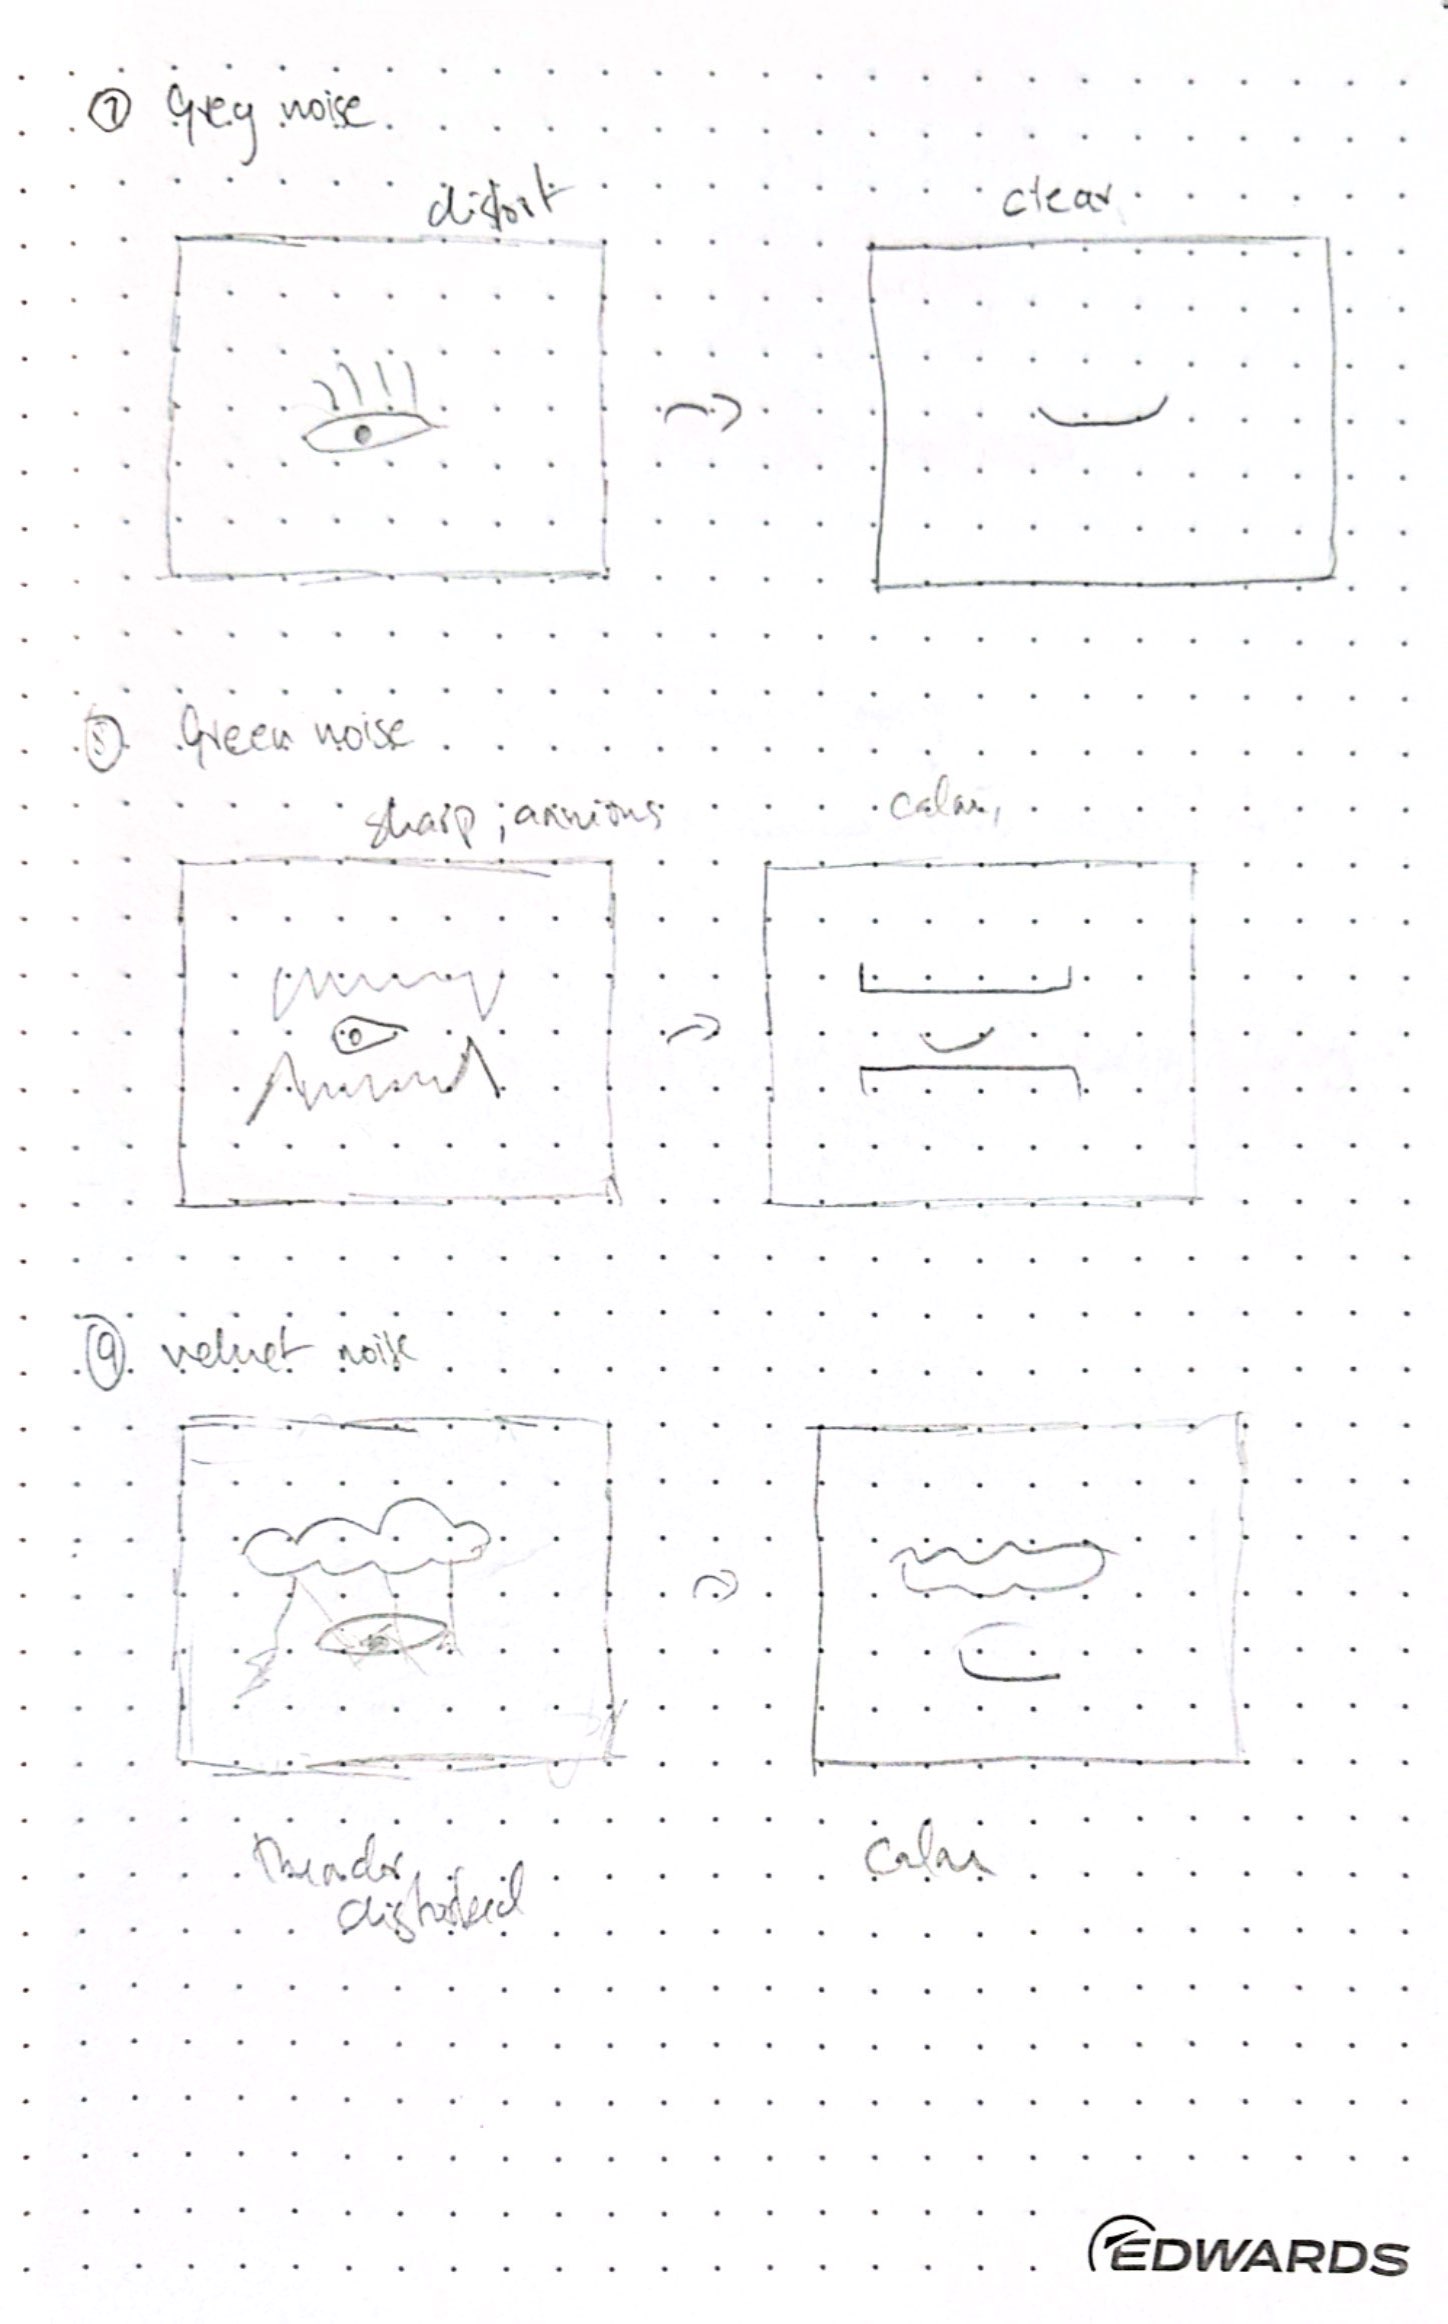 ⑦ Grey noise
distort clear
⑧ Green noise
sharp; anxious calm,
⑨ velvet noise
calm
distorted
EDWARDS